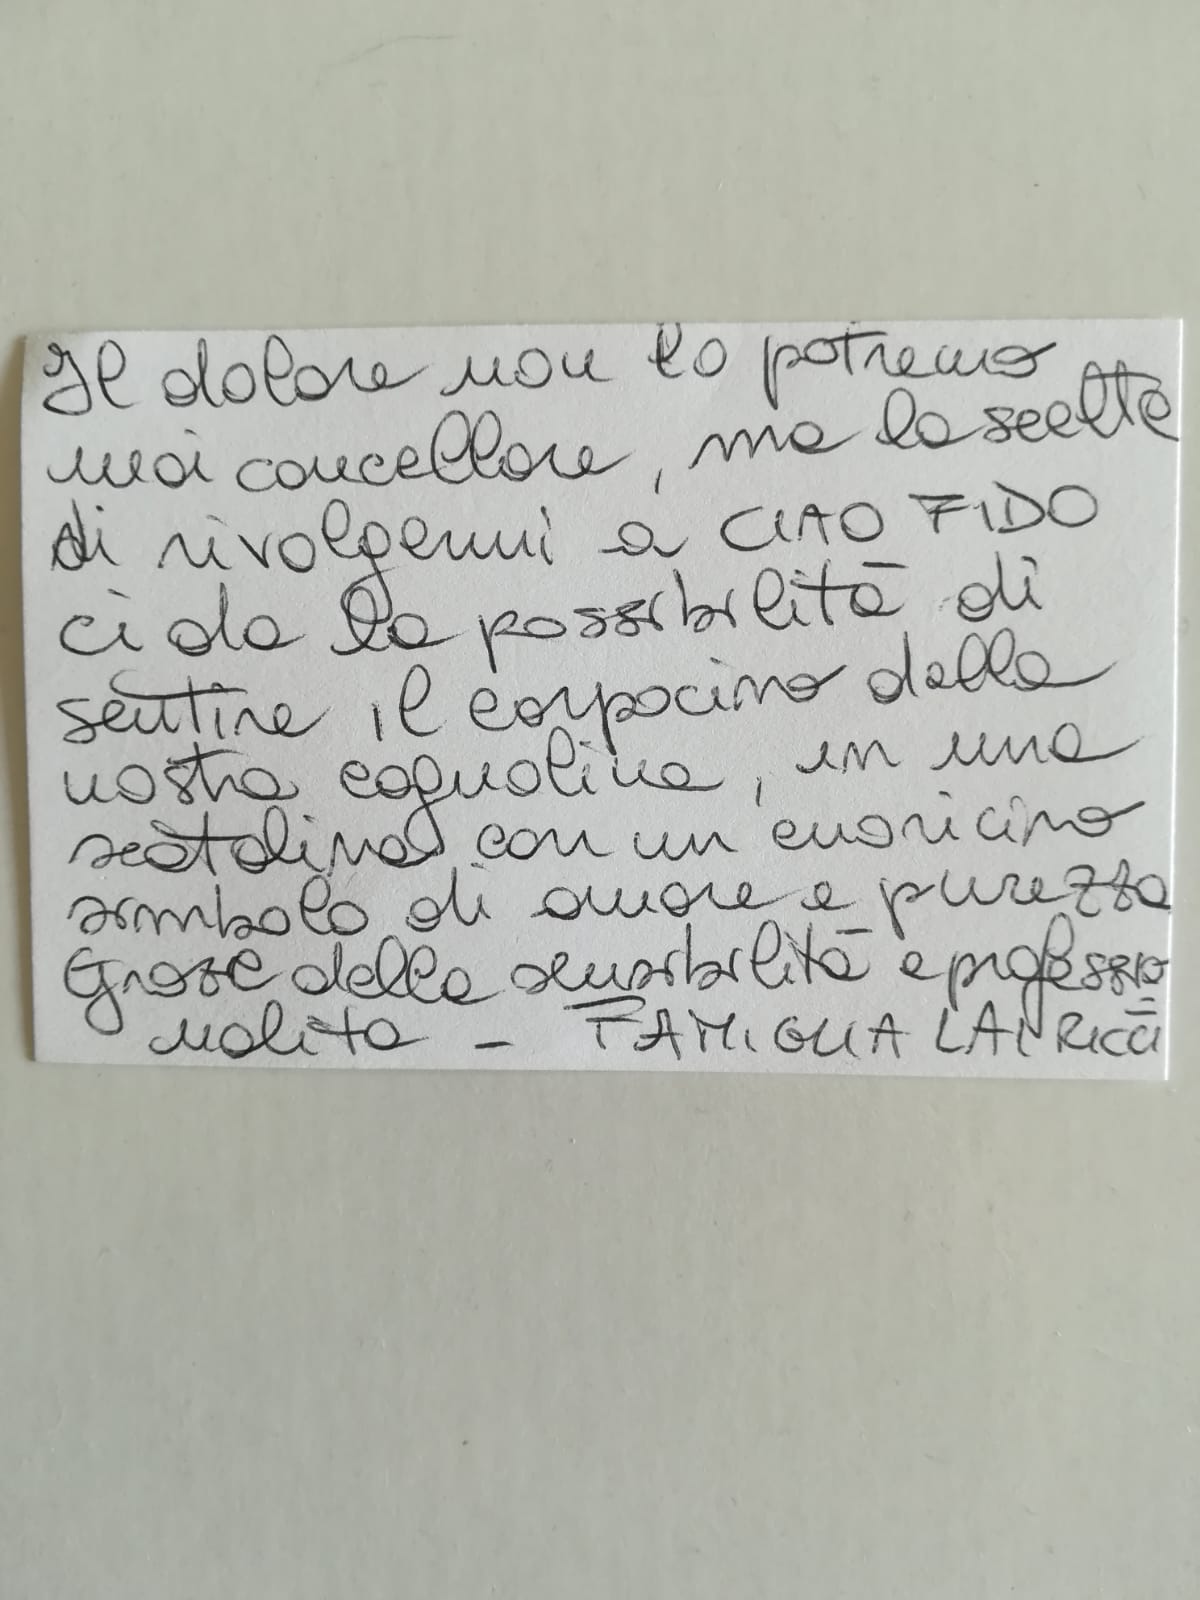 Il dolore non lo potremo
mai cancellare, ma la scelta
di rivolgermi a CIAO FIDO
ci da la possibilità di
sentire il corpocino della
nostra cagnolina, in una
scatolina con un cuoricino
simbolo di amore e purezza
Grazie della sensibilità e professio=
nalità - FAMIGLIA LAI RICCI